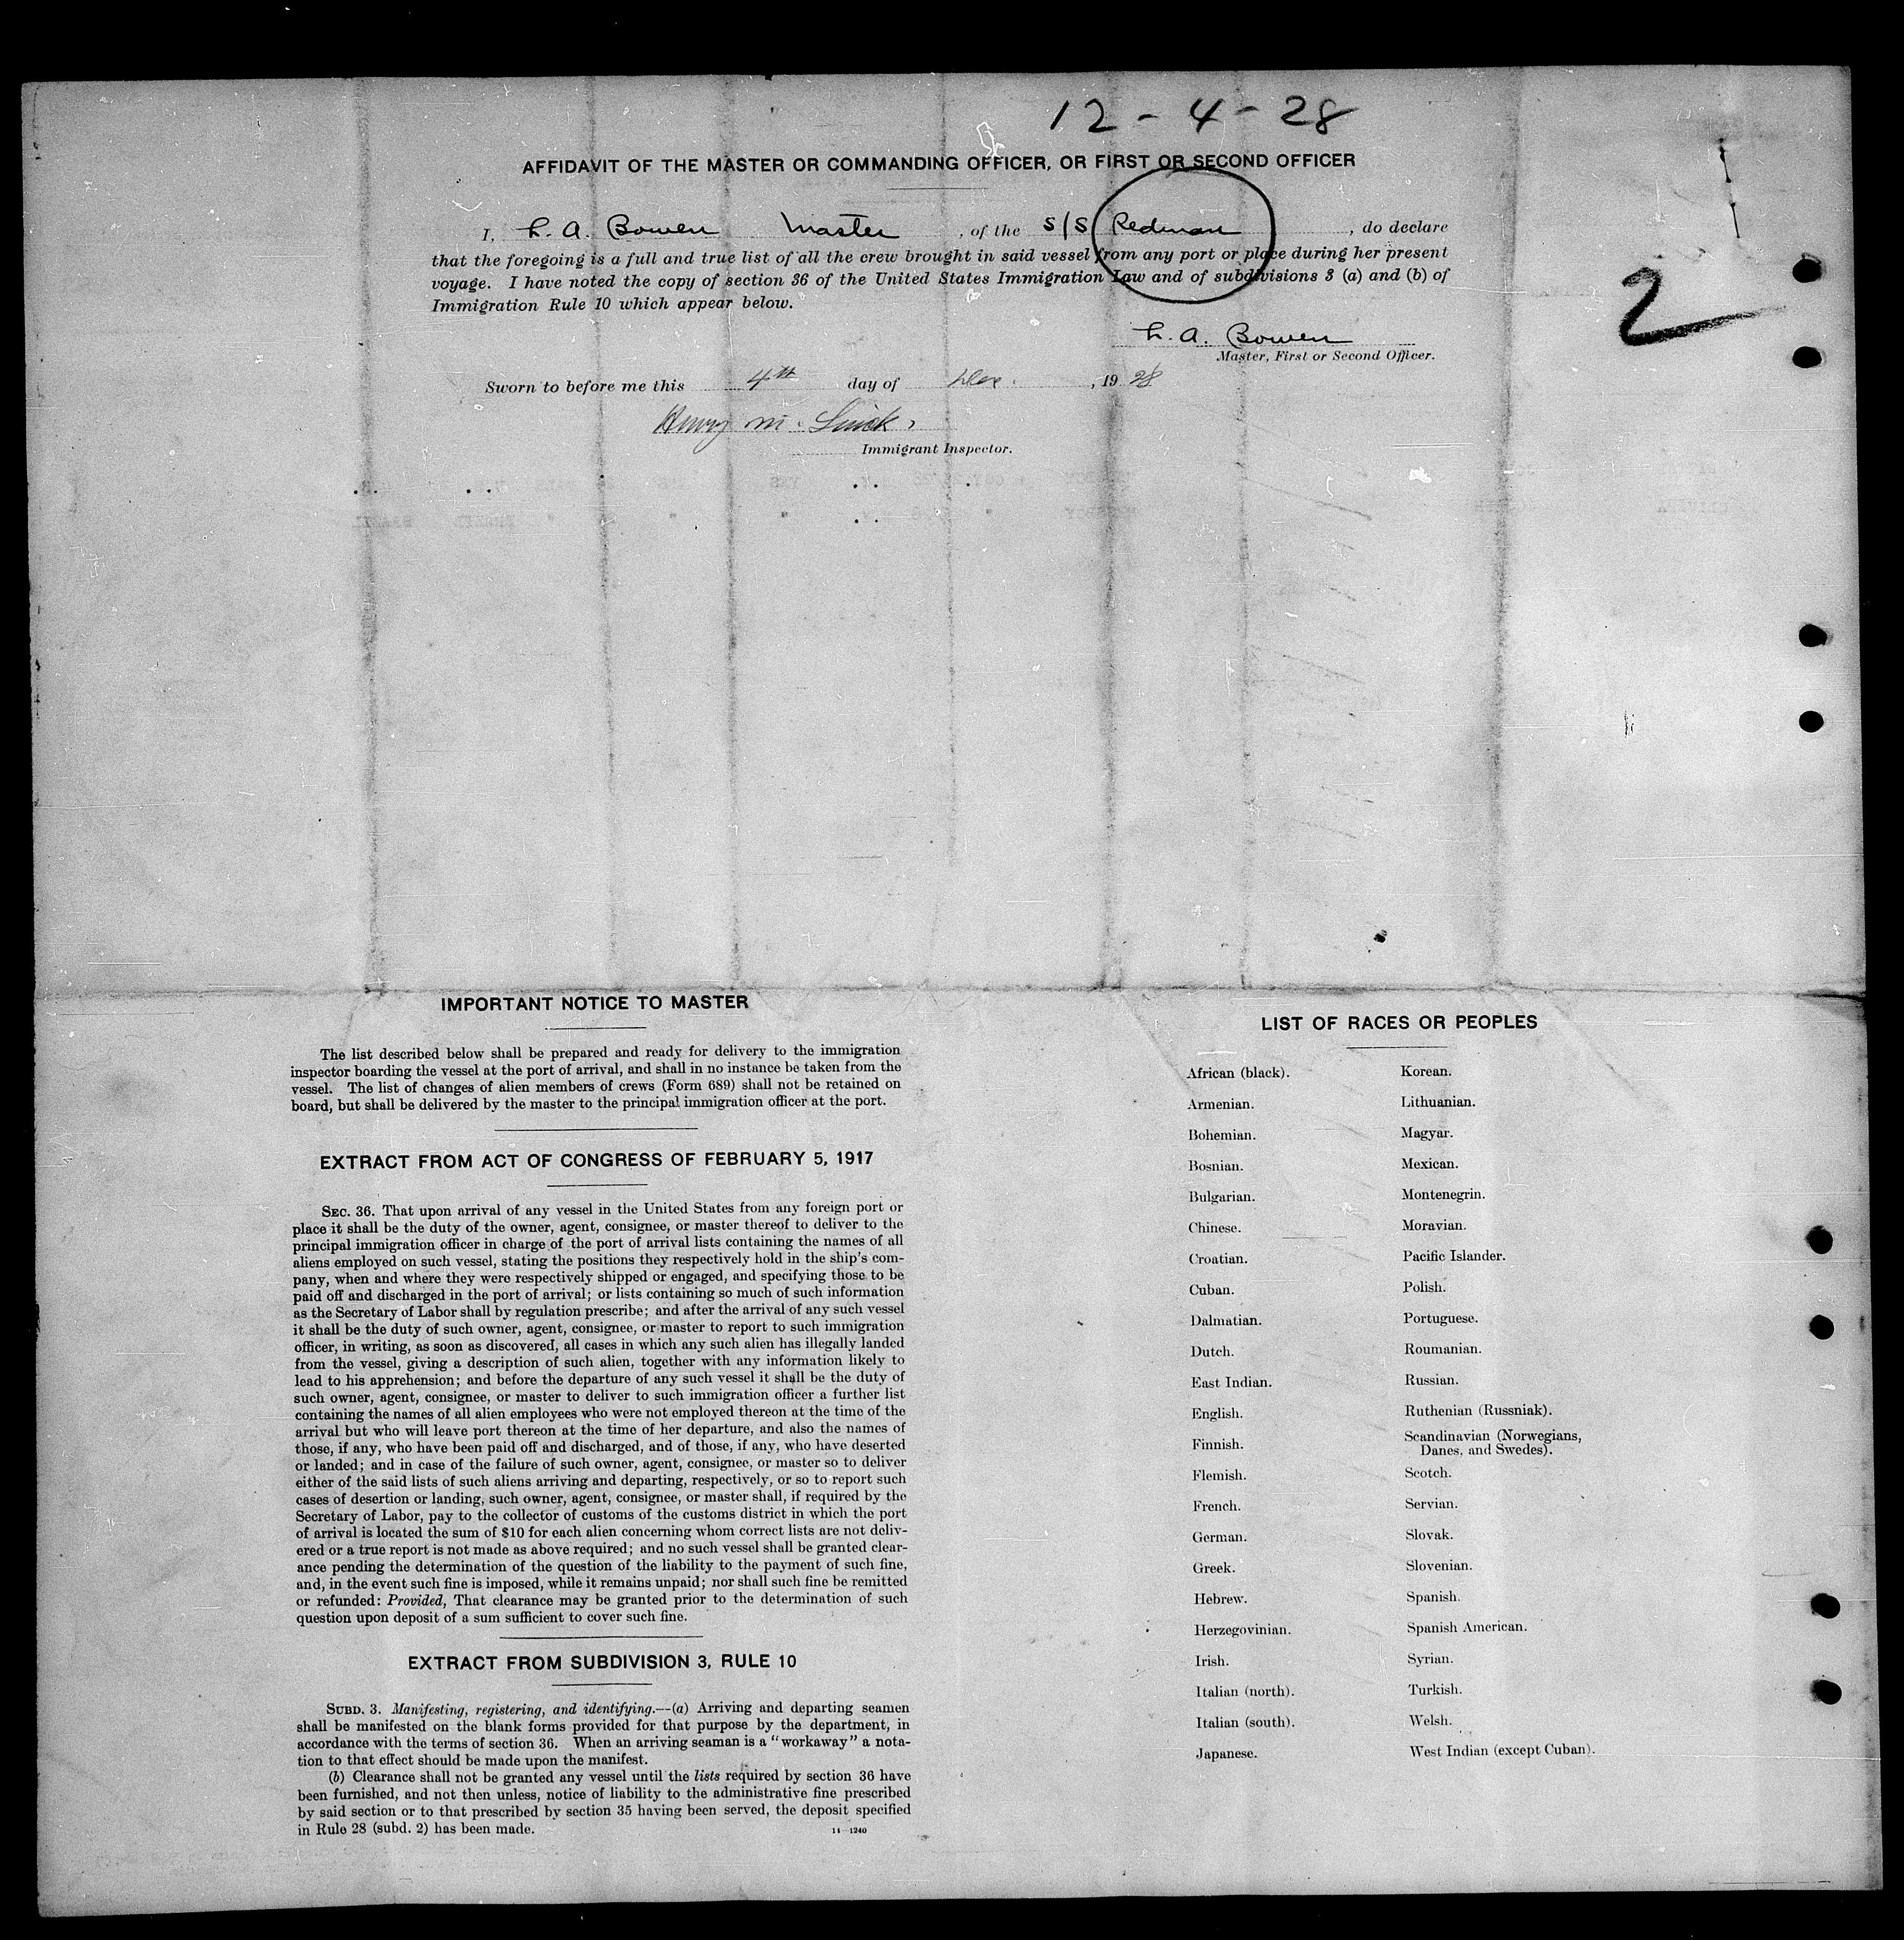 12 - 4 - 28
AFFIDAVIT OF THE MASTER OR COMMANDING OFFICER, OR FIRST OR SECOND OFFICER
I, L. A. Bowen Master, of the S/S Redman, do declare
that the foregoing is a full and true list of all the crew brought in said vessel from any port or place during her present
voyage. I have noted the copy of section 36 of the United States Immigration Law and of subdivisions 3 (a) and (b) of
Immigration Rule 10 which appear below.
2
L. A. Bowen
Master, First or Second Officer.
Sworn to before me this 4th day of Dec., 1928
Henry M.
Immigrant Inspector.
IMPORTANT NOTICE TO MASTER
The list described below shall be prepared and ready for delivery to the immigration
inspector boarding the vessel at the port of arrival, and shall in no instance be taken from the
vessel. The list of changes of alien members of crews (Form 689) shall not be retained on
board, but shall be delivered by the master to the principal immigration officer at the port.
EXTRACT FROM ACT OF CONGRESS OF FEBRUARY 5, 1917
SEC. 36. That upon arrival of any vessel in the United States from any foreign port or
place it shall be the duty of the owner, agent, consignee, or master thereof to deliver to the
principal immigration officer in charge of the port of arrival lists containing the names of all
aliens employed on such vessel, stating the positions they respectively hold in the ship's com-
pany, when and where they were respectively shipped or engaged, and specifying those to be
paid off and discharged in the port of arrival; or lists containing so much of such information
as the Secretary of Labor shall by regulation prescribe; and after the arrival of any such vessel
it shall be the duty of such owner, agent, consignee, or master to report to such immigration
officer, in writing, as soon as discovered, all cases in which any such alien has illegally landed
from the vessel, giving a description of such alien, together with any information likely to
lead to his apprehension; and before the departure of any such vessel it shall be the duty of
such owner, agent, consignee, or master to deliver to such immigration officer a further list
containing the names of all alien employees who were not employed thereon at the time of the
arrival but who will leave port thereon at the time of her departure, and also the names of
those, if any, who have been paid off and discharged, and of those, if any, who have deserted
or landed; and in case of the failure of such owner, agent, consignee, or master so to deliver
either of the said lists of such aliens arriving and departing, respectively, or so to report such
cases of desertion or landing, such owner, agent, consignee, or master shall, if required by the
Secretary of Labor, pay to the collector of customs of the customs district in which the port
of arrival is located the sum of $10 for each alien concerning whom correct lists are not deliv-
ered or a true report is not made as above required; and no such vessel shall be granted clear-
ance pending the determination of the question of the liability to the payment of such fine,
and, in the event such fine is imposed, while it remains unpaid; nor shall such fine be remitted
or refunded: Provided, That clearance may be granted prior to the determination of such
question upon deposit of a sum sufficient to cover such fine.
EXTRACT FROM SUBDIVISION 3, RULE 10
SUBD. 3. Manifesting, registering, and identifying.—(a) Arriving and departing seamen
shall be manifested on the blank forms provided for that purpose by the department, in
accordance with the terms of section 36. When an arriving seaman is a "workaway" a nota-
tion to that effect should be made upon the manifest.
(b) Clearance shall not be granted any vessel until the lists required by section 36 have
been furnished, and not then unless, notice of liability to the administrative fine prescribed
by said section or to that prescribed by section 35 having been served, the deposit specified
in Rule 28 (subd. 2) has been made.
14—1240
LIST OF RACES OR PEOPLES
African (black).
Armenian.
Bohemian.
Bosnian.
Bulgarian.
Chinese.
Croatian.
Cuban.
Dalmatian.
Dutch.
East Indian.
English.
Finnish.
Flemish.
French.
German.
Greek.
Hebrew.
Herzegovinian.
Irish.
Italian (north).
Italian (south).
Japanese.
Korean.
Lithuanian.
Magyar.
Mexican.
Montenegrin.
Moravian.
Pacific Islander.
Polish.
Portuguese.
Roumanian.
Russian.
Ruthenian (Russniak).
Scandinavian (Norwegians,
Danes, and Swedes).
Scotch.
Servian.
Slovak.
Slovenian.
Spanish.
Spanish American.
Syrian.
Turkish.
Welsh.
West Indian (except Cuban).